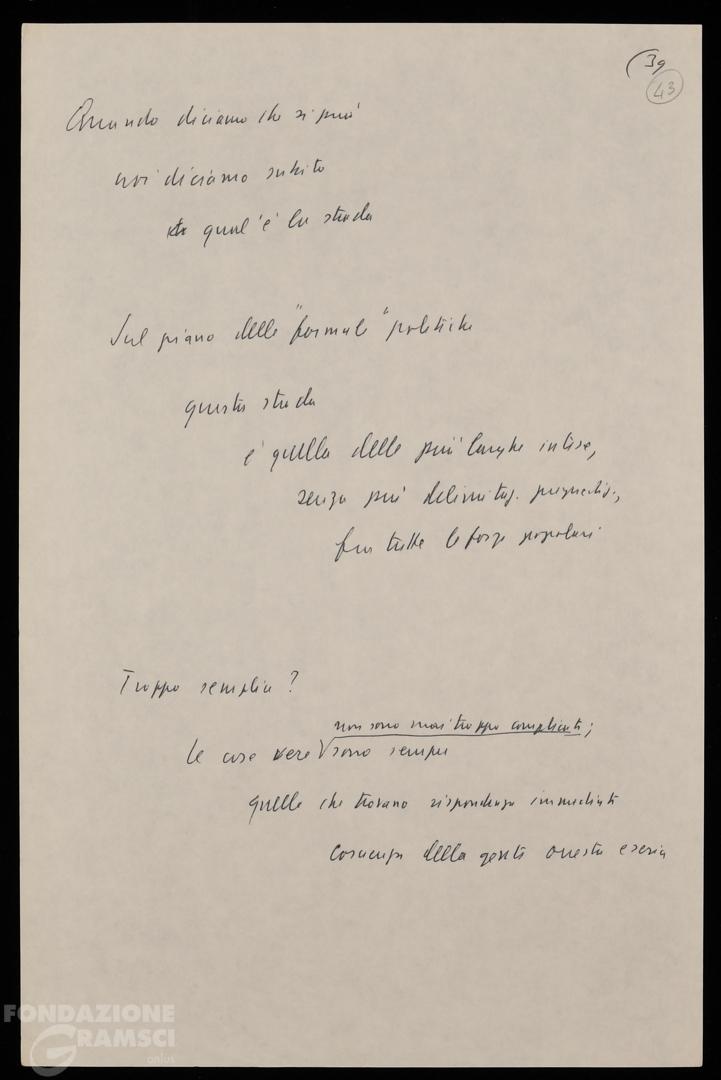 39
43
Quando diciamo che si può
noi diciamo subito
qual'è la strada
Sul piano delle "formule" politiche
questa strada
è quella delle più larghe intese,
senza più delimitaz. pregiudiz.,
fra tutte le forze popolari
Troppo semplice?
non sono mai troppo complicate;
le cose vere sono sempre
quelle che trovano rispondenza immediata
coscienza della gente onesta e seria
FONDAZIONE
GRAMSCI
onlus